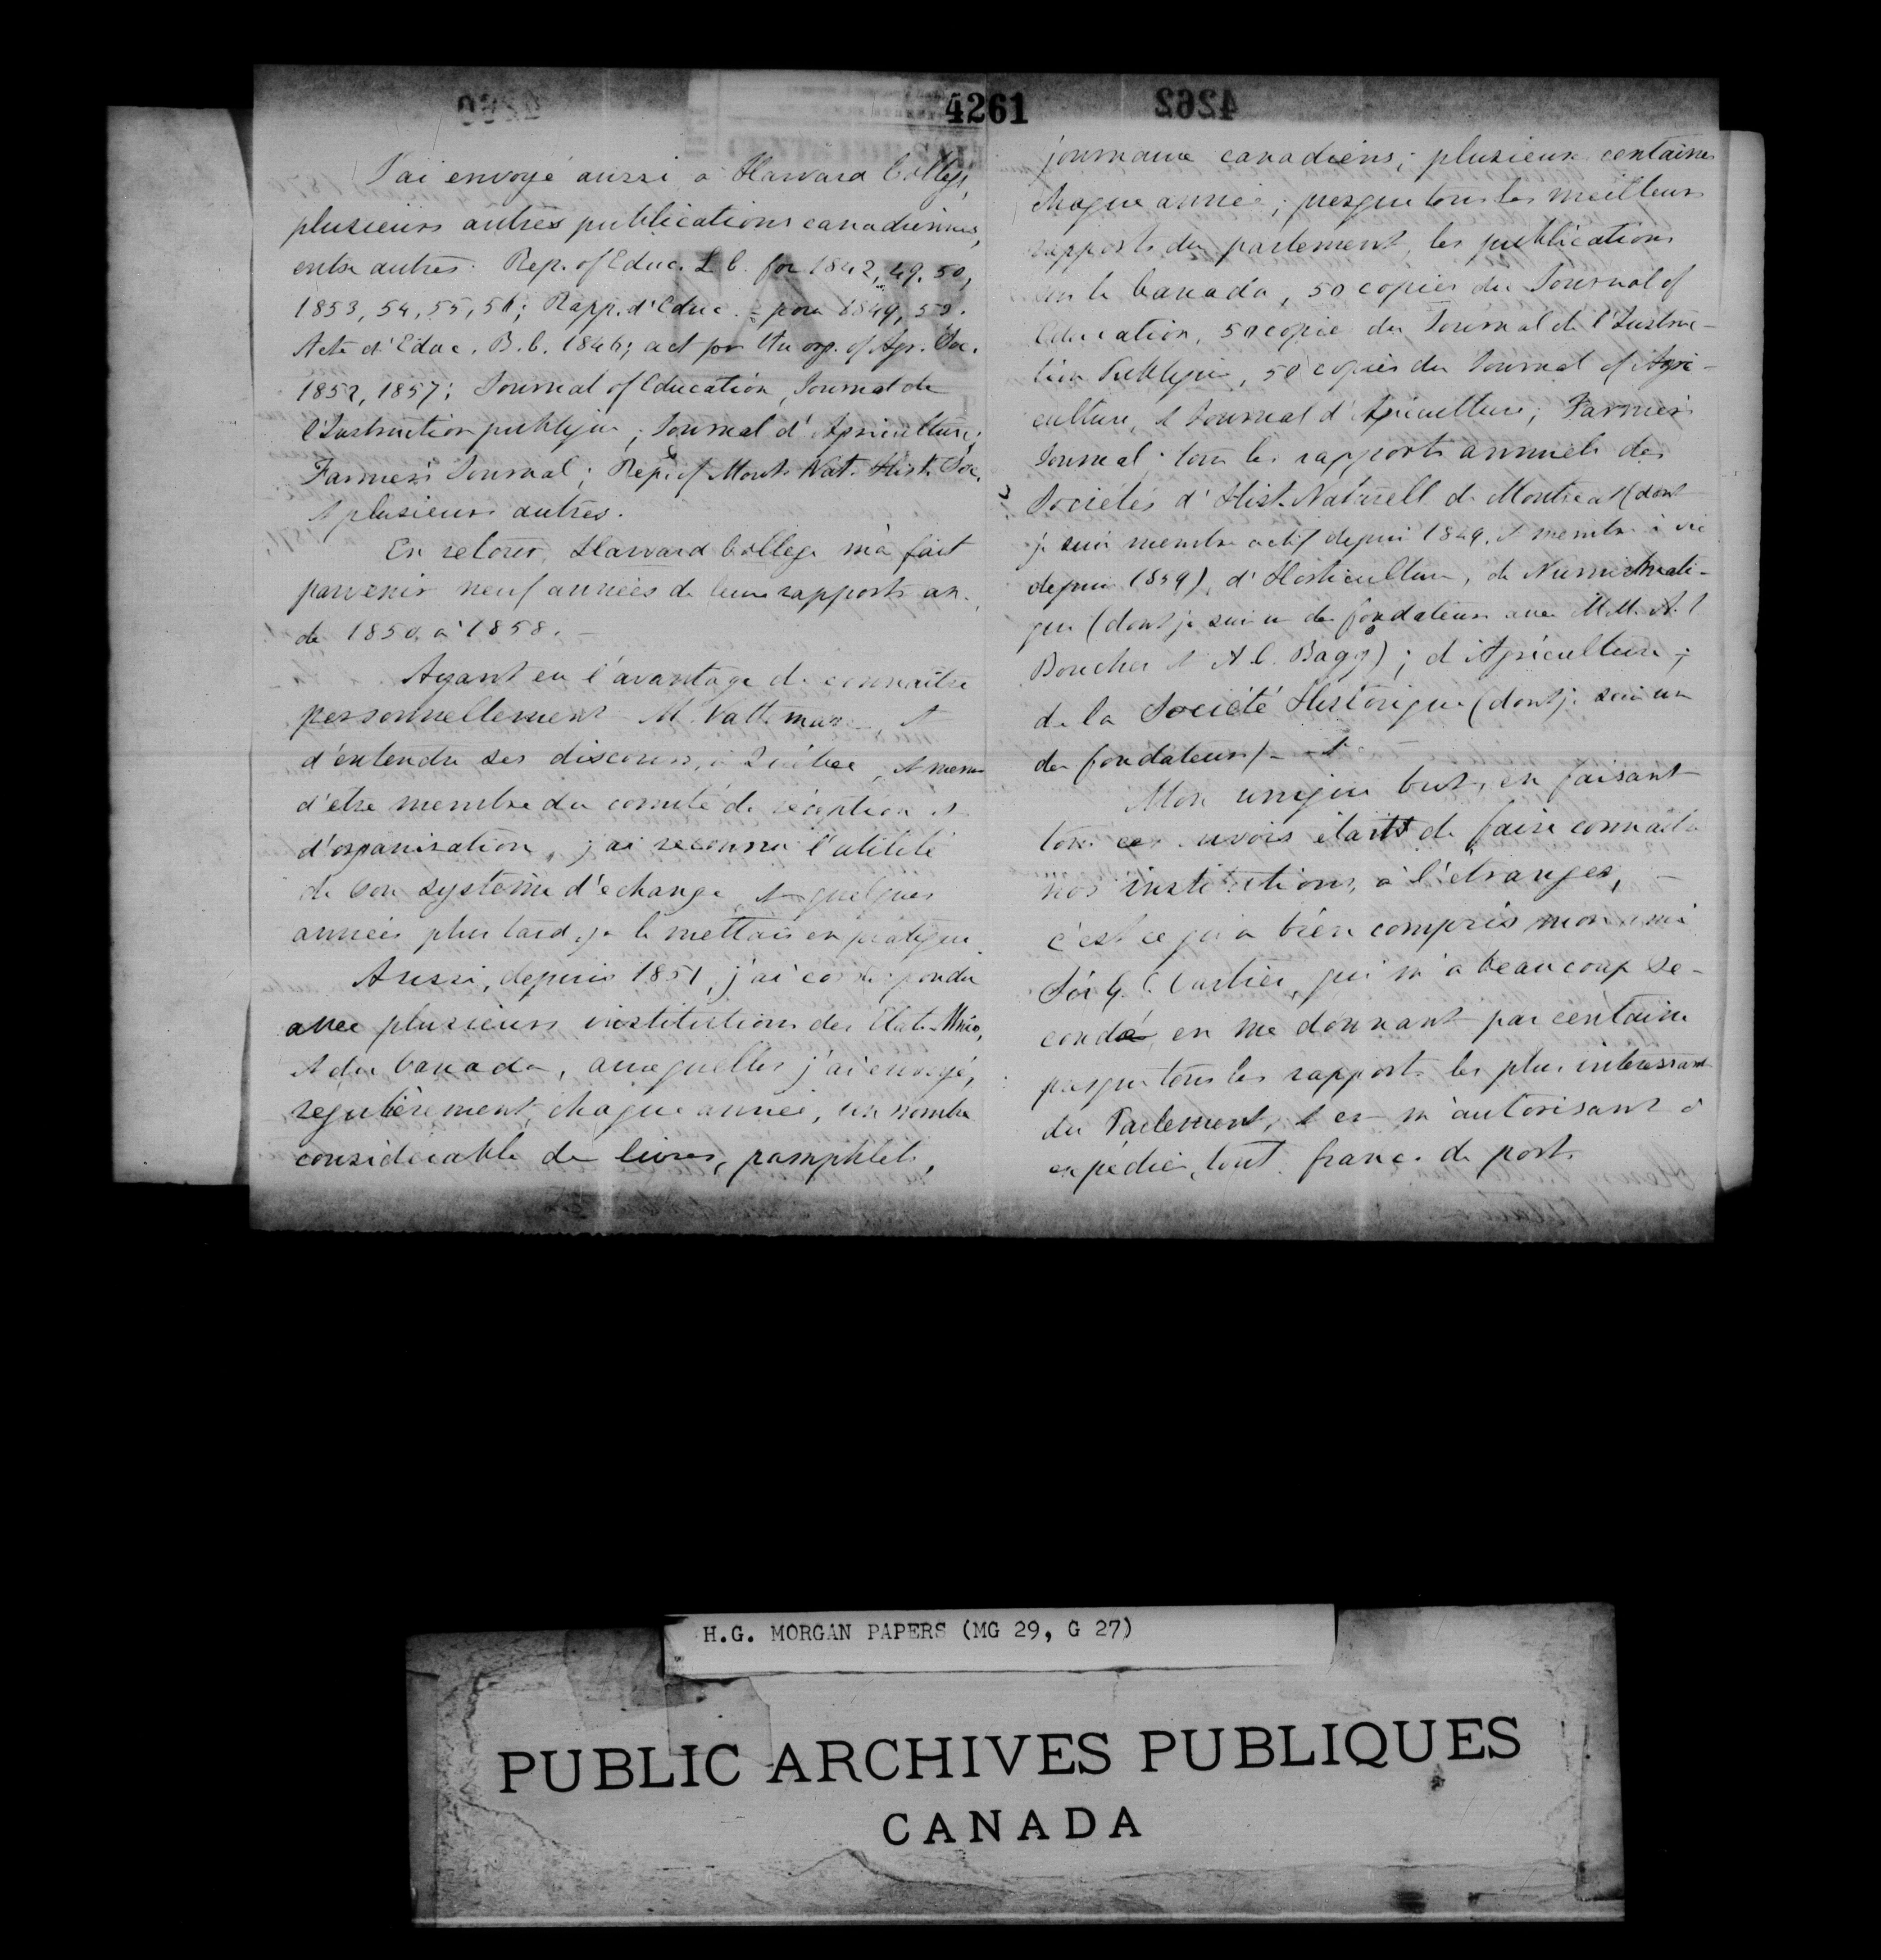 4261
J'ai envoyé aussi à Harvard College,
plusieurs autres publications canadiennes,
entre autres: Rep. of Educ. L. C. for 1842, 49, 50,
1853, 54, 55, 56; Rapp. d'Educ. pour 1849, 50.
Acte d'Educ. B. C. 1846; act for the org. of Agr. Soc.
1852, 1857; Journal of Education, Journal de
l'Instruction publique; Journal d'Agriculture;
Farmer's Journal; Rep. of Mont. Nat. Hist. Soc.
& plusieurs autres.
En retour, Harvard College m'a fait
parvenir neuf années de leurs rapports an.
de 1850 à 1858. -
Ayant eu l'avantage de connaître
personnellement M. Vattemare, &
d'entendre ses discours, à Québec, & même
d'être membre du comité de réception &
d'organisation, j'ai reconnu l'utilité
de son système d'échange, & quelques
années plus tard, je le mettais en pratique.
Aussi, depuis 1851, j'ai correspondu
avec plusieurs institutions des Etats-Unis,
& du Canada, auxquelles j'ai envoyé,
regulièrement, chaque année, un nombre
considérable de livres, pamphlets,
4262
journaux canadiens; plusieurs centaines
chaque année; presque tous les meilleurs
rapports du parlement, les publications
sur le Canada, 50 copies du Journal of
Education, 50 copies du Journal de l'Instruc-
tion Publique, 50 copies du Journal of Agri-
culture, & Journal d'Agriculture; Farmer's
Journal; tous les rapports annuels des
Sociétés d'Hist. Naturelle de Montréal (dont
je suis membre actif depuis 1849, & membre à vie
depuis 1859), d'Horticulture, de Numismati-
que (dont je suis un des fondateurs avec MM.
Boucher & A. C. Bagg); d'Agriculture;
de la Société Historique (dont je suis un
des fondateurs) -
Mon unique but, en faisant
tous ces envois était de faire connaître
nos institutions, à l'étranger, -
c'est ce qu'a bien compris mon ami
Sir G. E. Cartier, qui m'a beaucoup se-
condé, en me donnant par centaine
presque tous les rapports les plus interessants
du Parlement, & en m'autorisant à
expédier, tout franc de port.
H.G. MORGAN PAPERS (MG 29, G 27)
PUBLIC ARCHIVES PUBLIQUES
CANADA